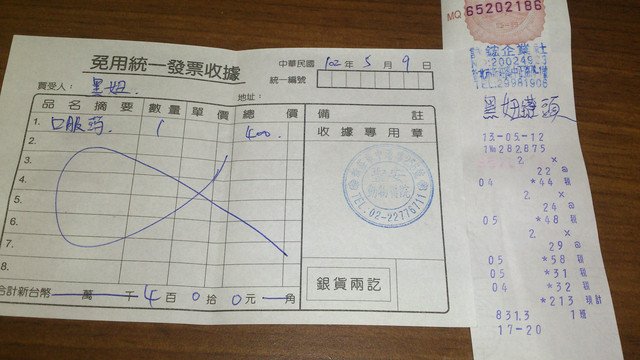 免用統一發票收據
中華民國 102 年 5 月 9 日
統一編號
買受人： 黑妞
地址：
品名 摘要 數量 單價 總價 備註
1. 口服藥 1 400 收據專用章
2.
3.
4.
5.
6.
7.
8.
動物醫院
TEL:02-22776711
銀貨兩訖
合計新台幣 萬 千 4 百 0 拾 0 元 角
MQ 65202186
鋐企業社
TEL:29981908
黑妞罐頭
13-05-12
282875
2 x
22 @
04 *44
2 x
24 @
05 *48
2 x
29 @
05 *58
05 *31
04 *32
*213 現計
8313 1班
17-20